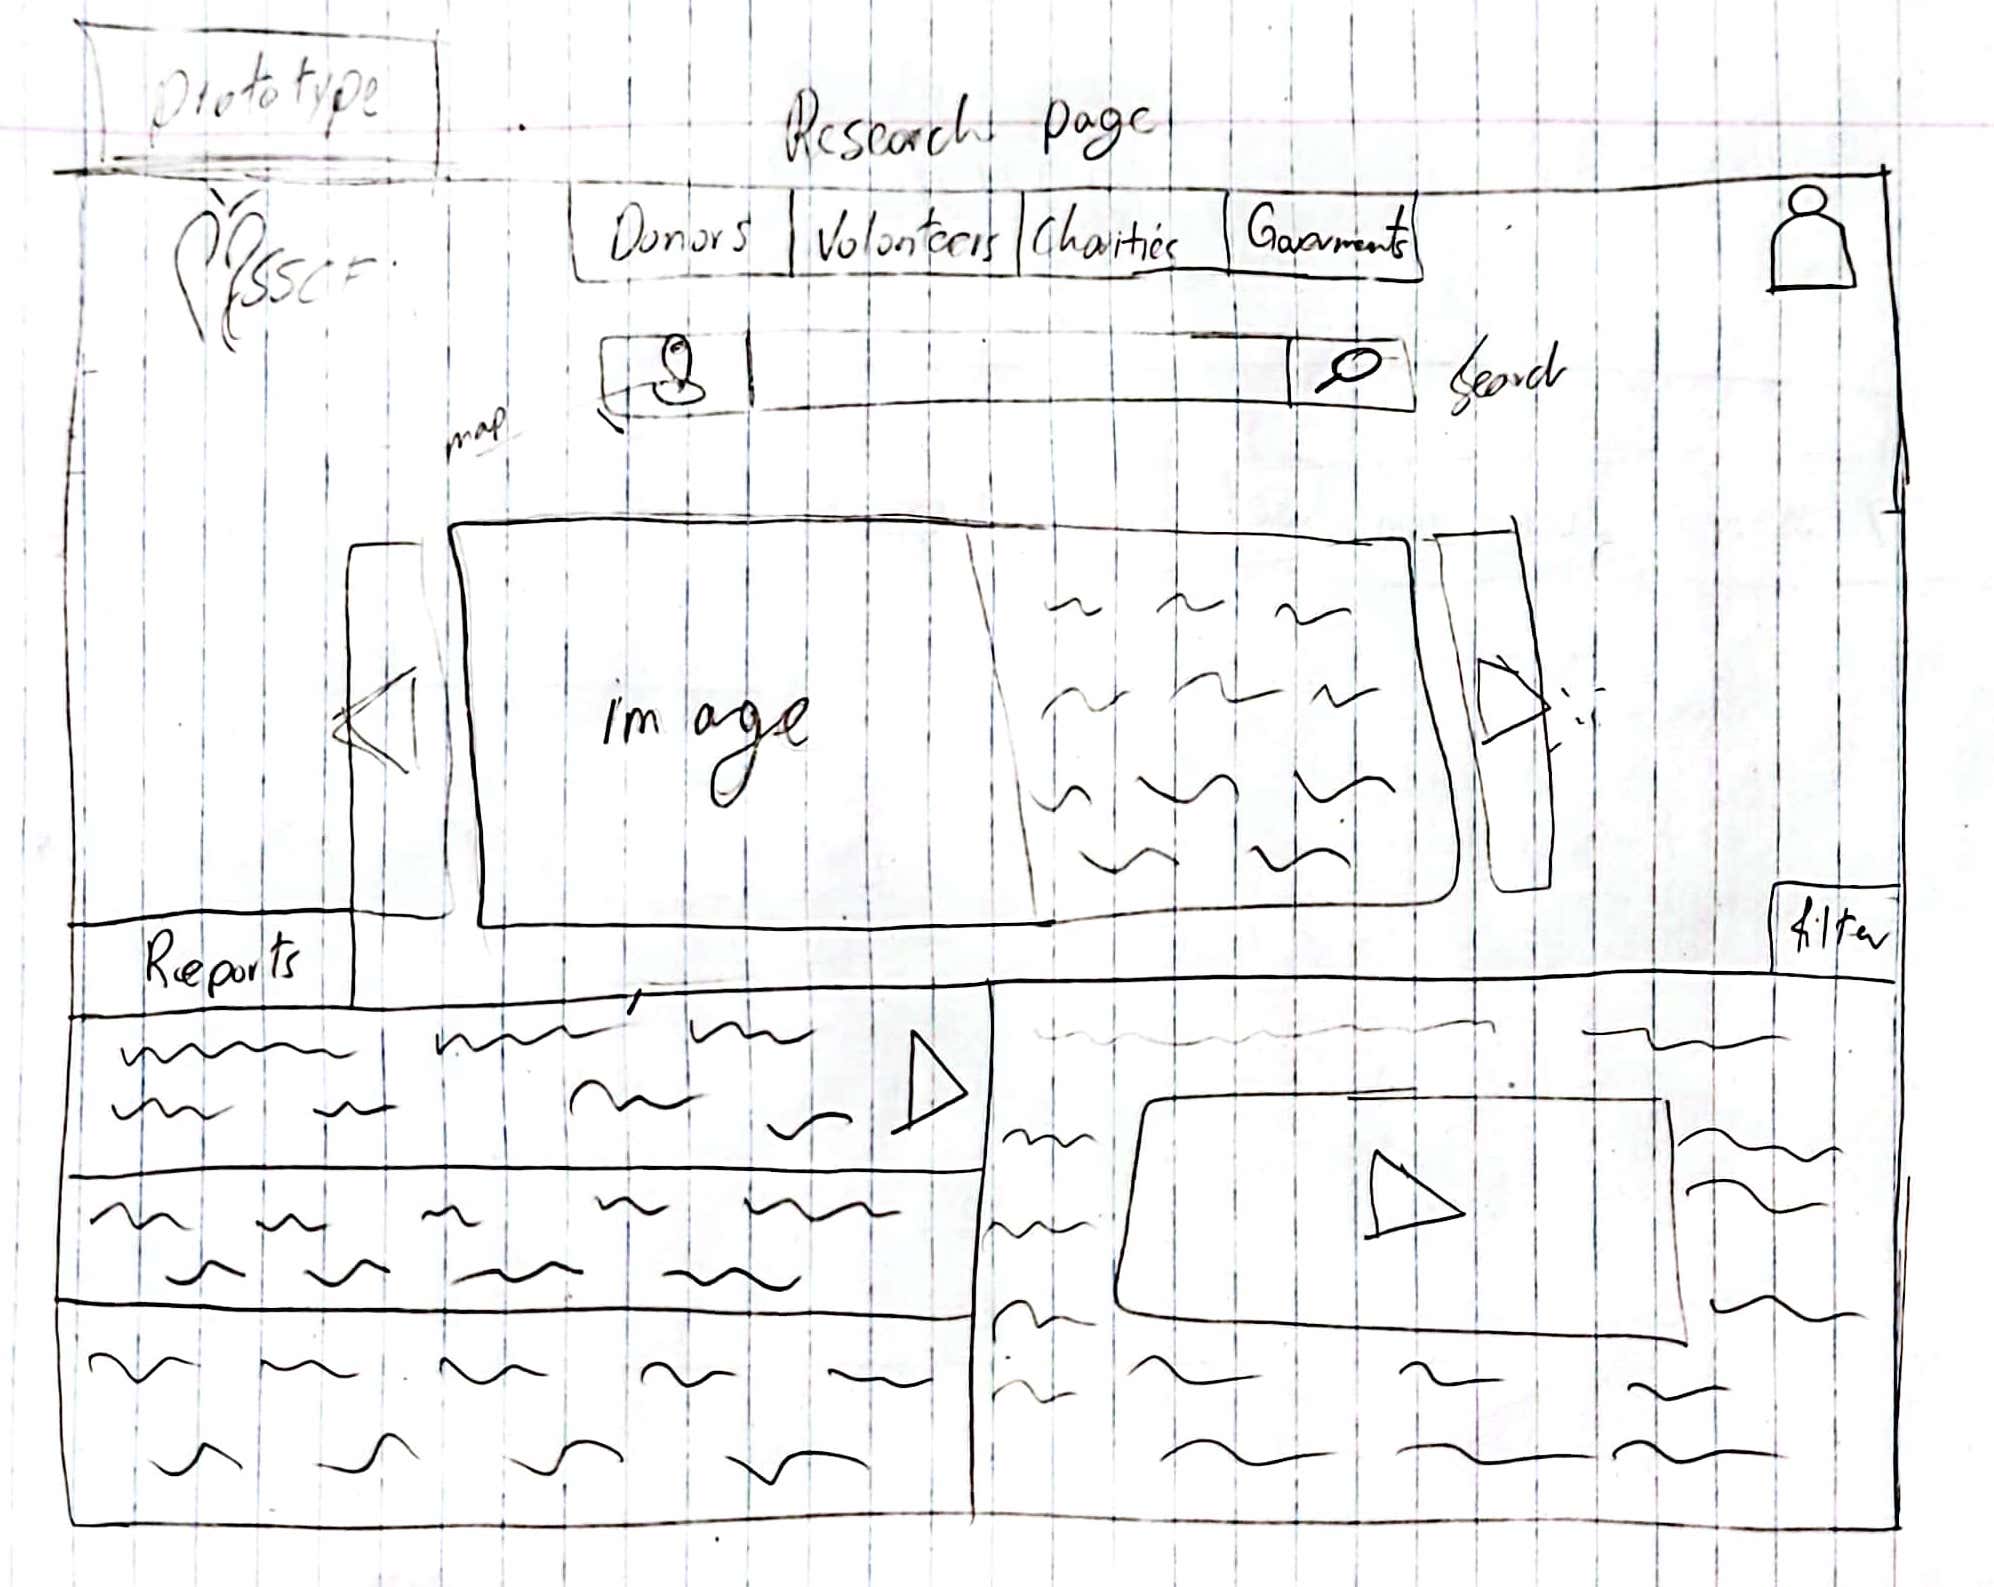 Prototype
Research page
SSCF
Donors Volonteers Charities Goverments
Search
map
image
Reports
filter